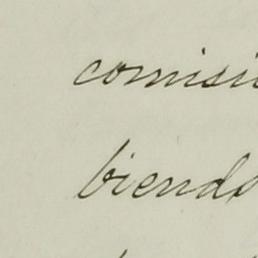 comisi
biendo